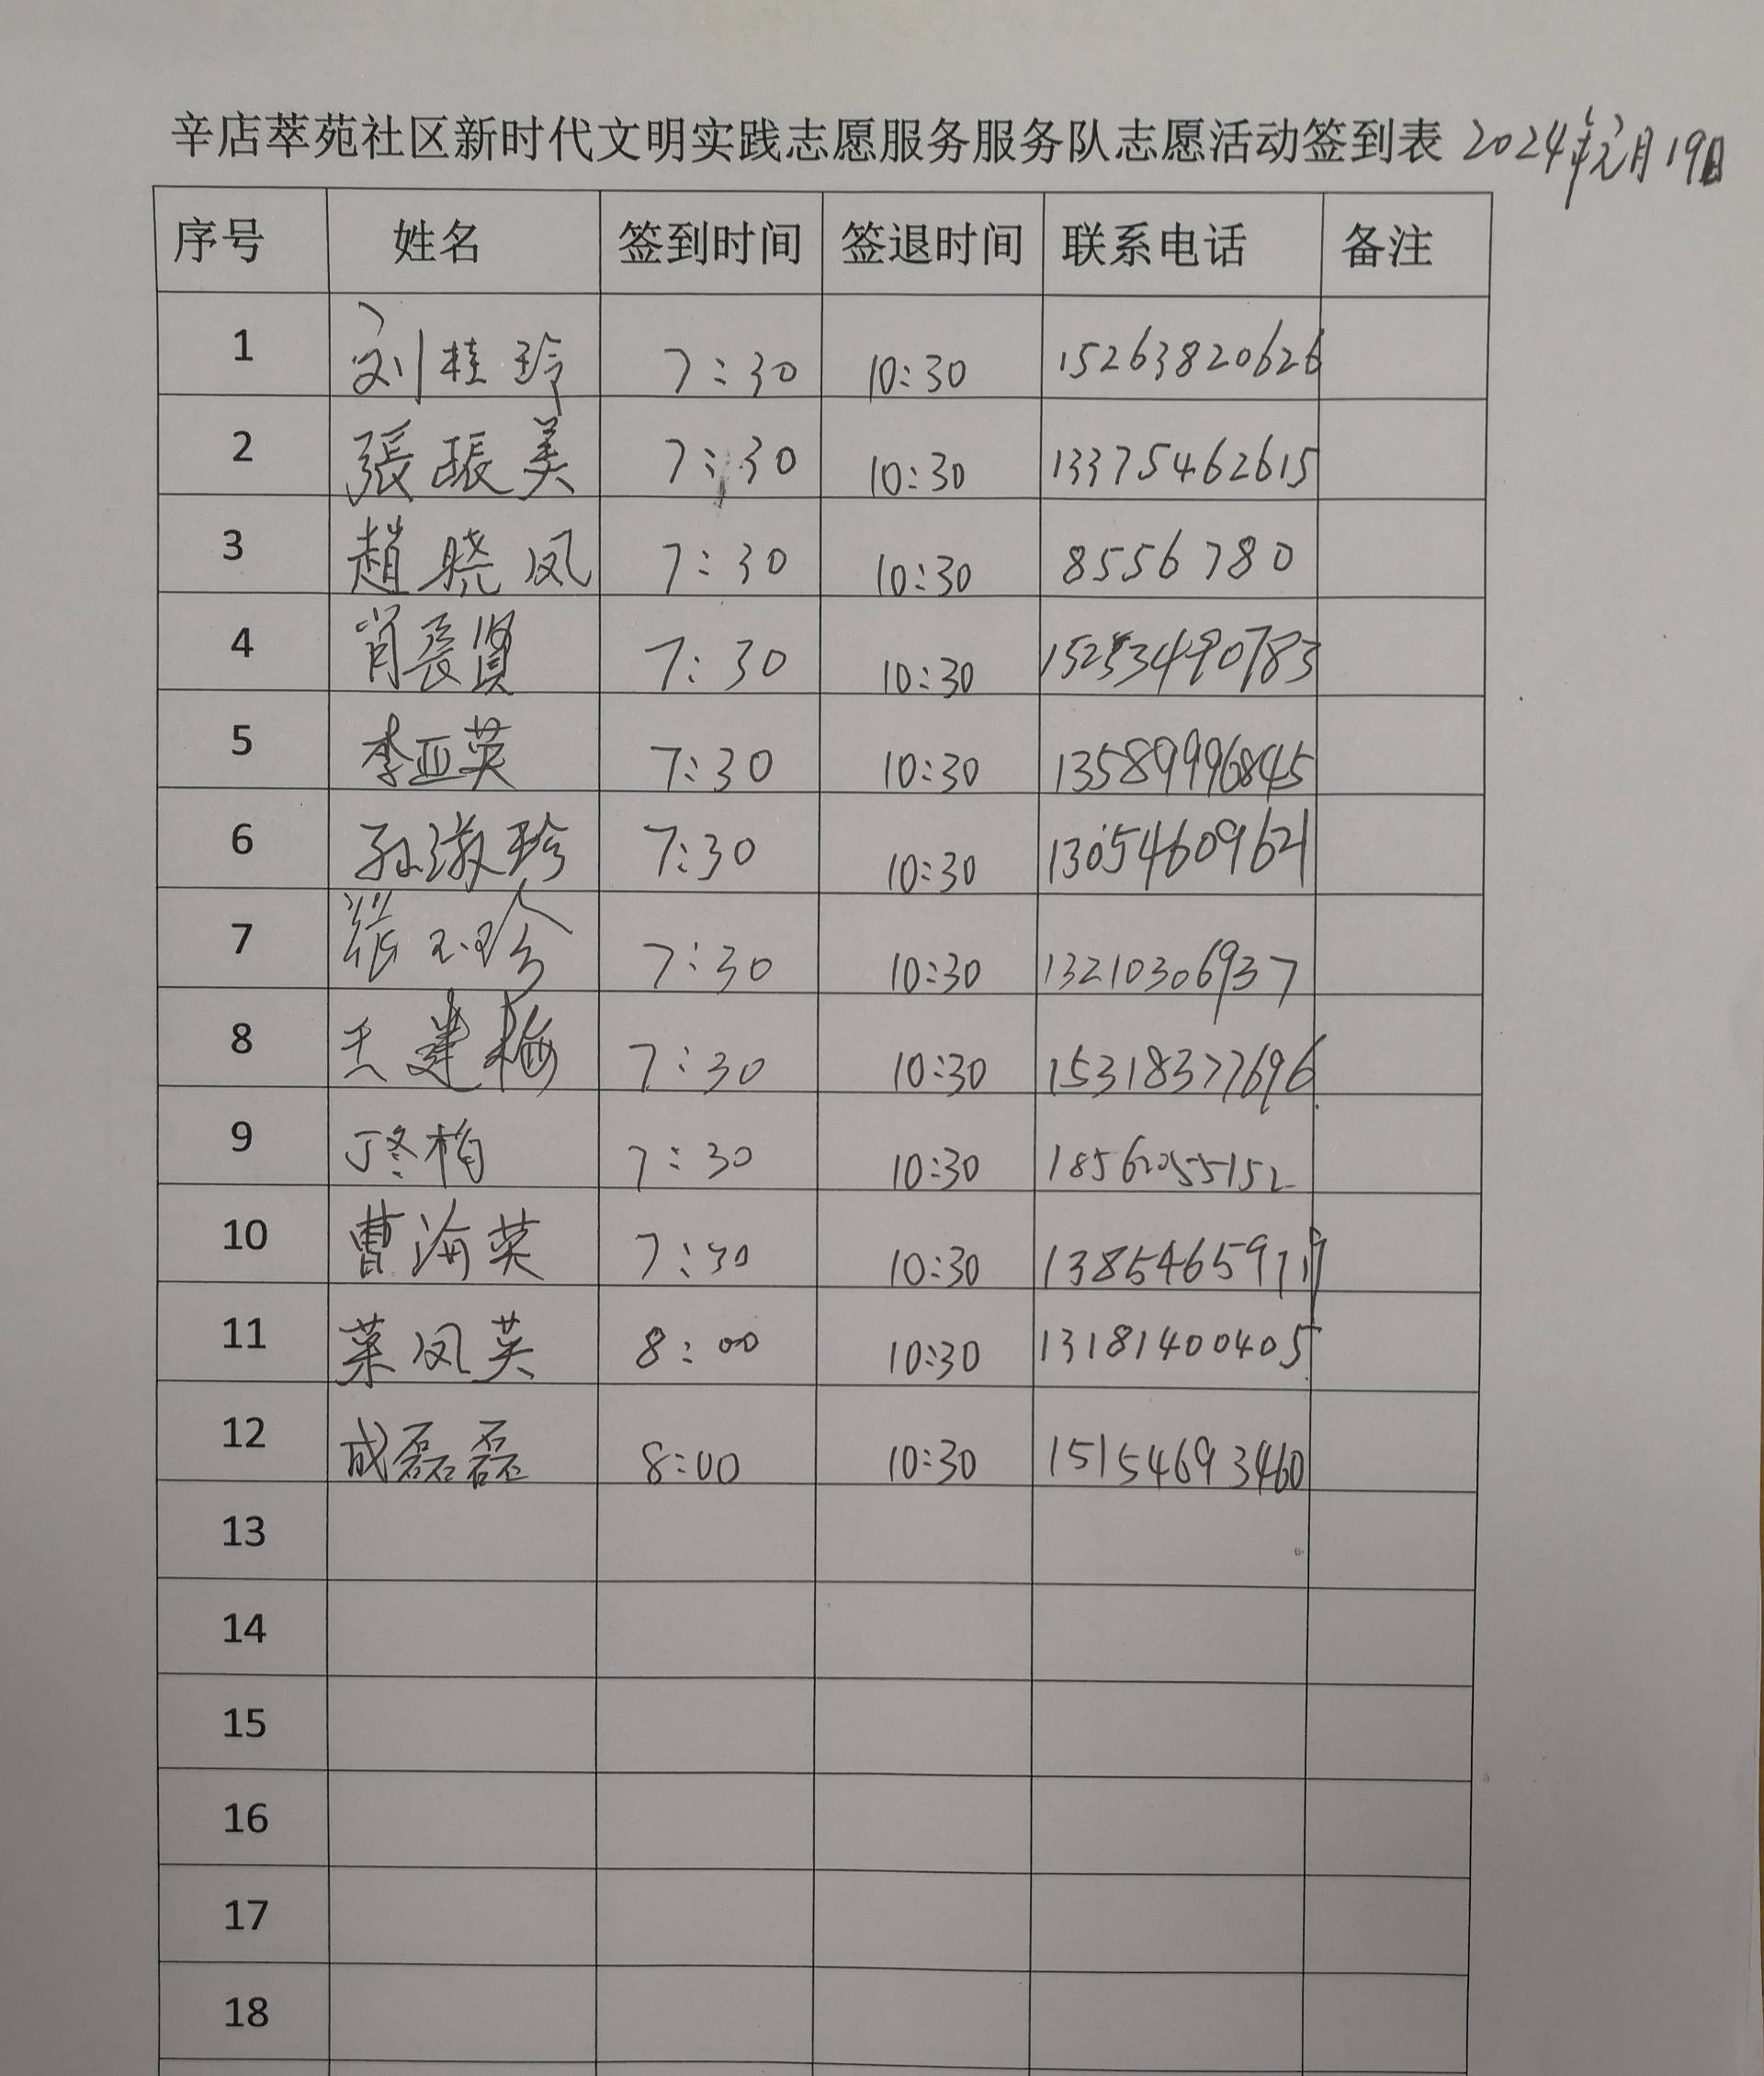 辛店萃苑社区新时代文明实践志愿服务服务队志愿活动签到表 2024年元月19日
序号 姓名 签到时间 签退时间 联系电话 备注
1 刘桂玲 7:30 10:30 15263820626
2 張振美 7:30 10:30 13375462615
3 趙晓凤 7:30 10:30 8556780
4 肖長賢 7:30 10:30
5 李亚英 7:30 10:30 13589996845
6 孙淑珍 7:30 10:30 13054609621
7 张玉珍 7:30 10:30 13210306937
8 王建梅 7:30 10:30 15318377696
9 7:30 10:30 18562055152
10 曹海英 7:30 10:30
11 菜凤英 8:00 10:30 13181400405
12 成磊磊 8:00 10:30 15154693460
13
14
15
16
17
18